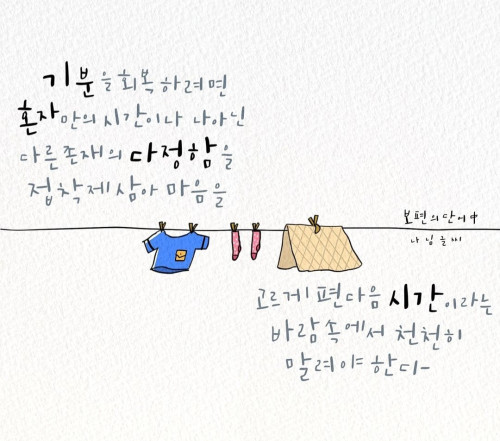 기분을 회복하려면
혼자만의 시간이나 나아닌
다른존재의 다정함을
접착제삼아 마음을
보편의단어中
나밈글씨
고르게 편다음 시간이라는
바람속에서 천천히
말려야 한다-